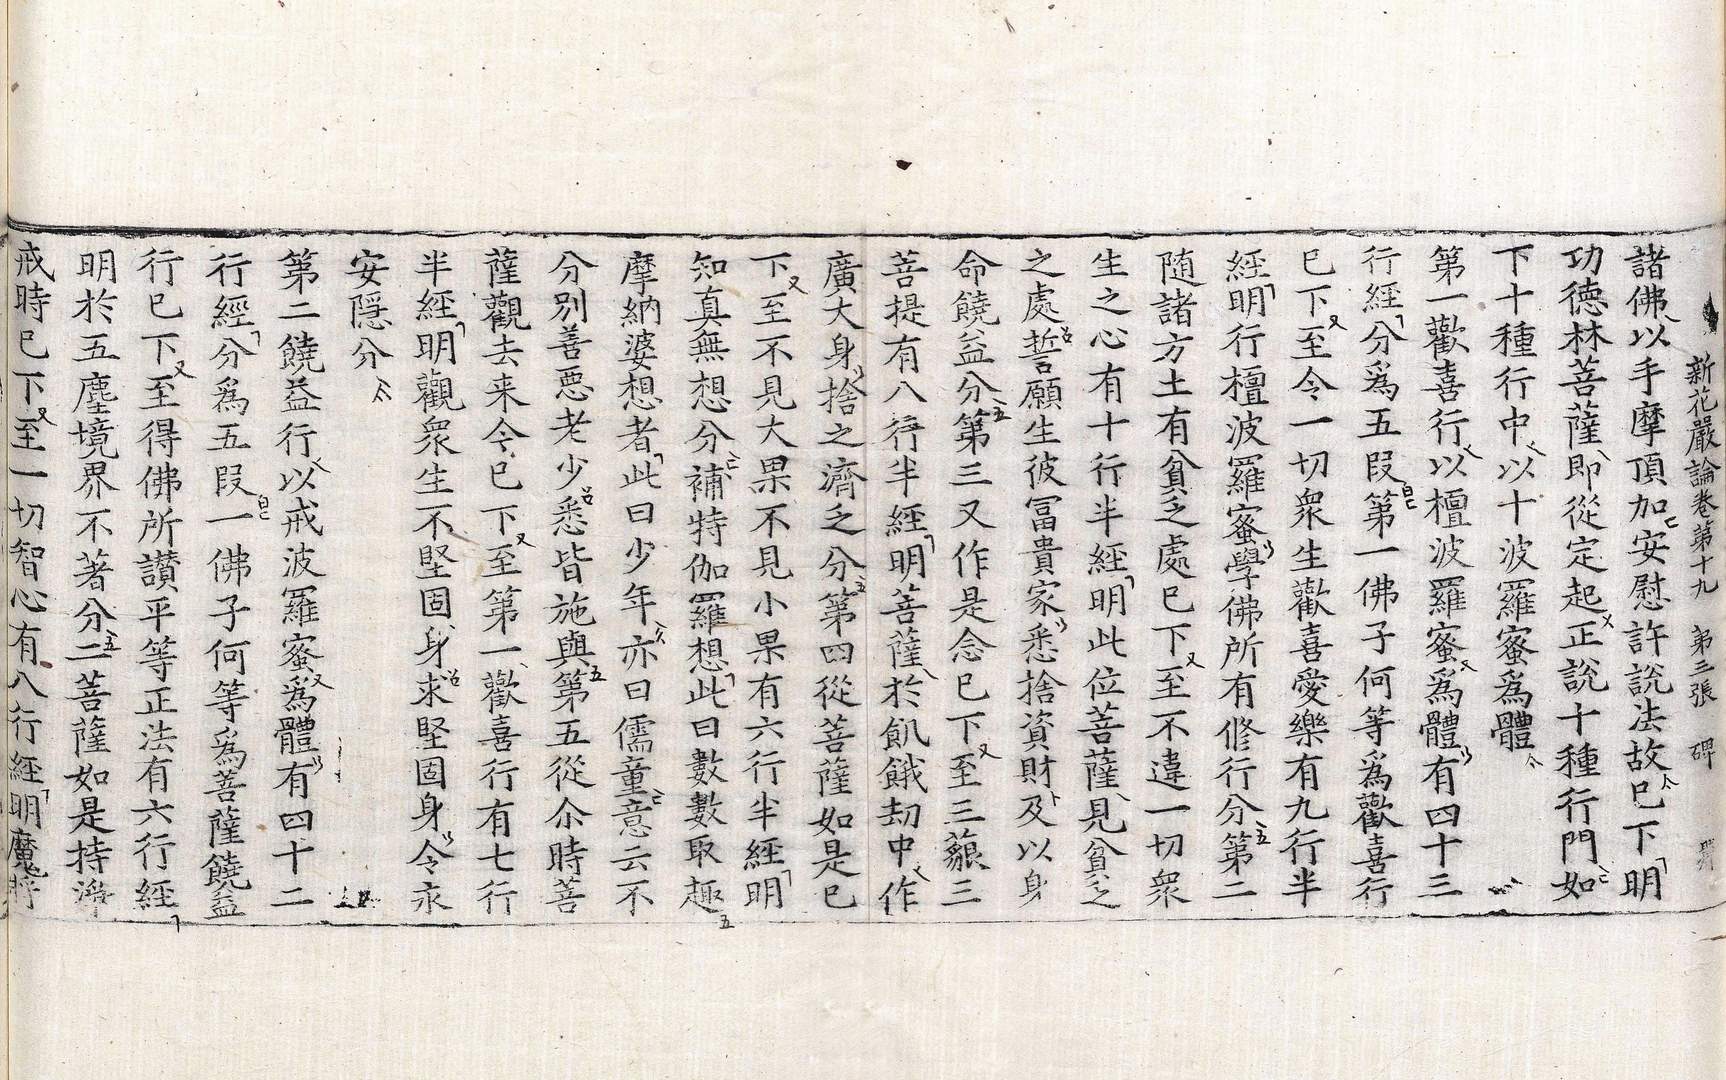 新花嚴論卷第十九 第三張 碑
諸佛以手摩頂加安慰許說法故已下明
功德林菩薩即從定起正說十種行門如
下十種行中以十波羅蜜爲體
第一歡喜行以檀波羅蜜爲體有四十三
行經分爲五段第一佛子何等爲歡喜行
已下至令一切衆生歡喜愛樂有九行半
經明行檀波羅蜜學佛所有修行分第二
随諸方土有貧乏處已下至不違一切衆
生之心有十行半經明此位菩薩見貧乏
之處誓願生彼冨貴家悉捨資財及以身
命饒益分第三又作是念已下至三藐三
菩提有八行半經明菩薩於飢餓劫中作
廣大身捨之濟乏分第四從菩薩如是已
下至不見大果不見小果有六行半經明
知真無想分補特伽羅想此曰數數取趣
摩納婆想者此曰少年亦曰儒童意云不
分別善惡老少悉皆施與第五從尒時菩
薩觀去来今已下至第一歡喜行有七行
半經明觀衆生不堅固身求堅固身令永
安隠分
第二饒益行以戒波羅蜜爲體有四十二
行經分爲五段一佛子何等爲菩薩饒益
行已下至得佛所讃平等正法有六行經
明於五塵境界不著分二菩薩如是持淨
戒時已下至一切智心有八行經明魔將